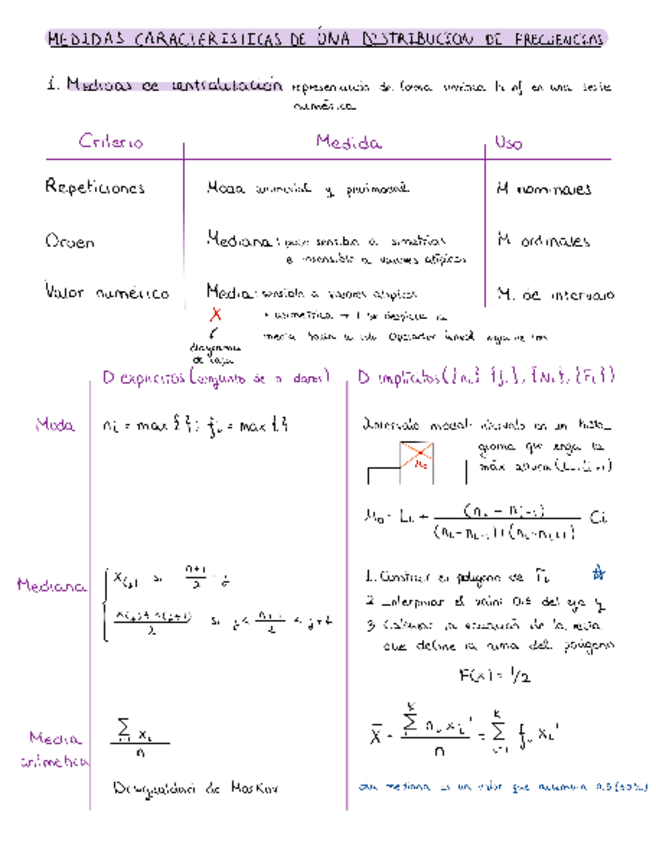 MEDIDAS CARACTERISTICAS DE UNA DISTRIBUCION DE FRECUENCIAS
1. Medidas de centralización representación de forma en una serie
numérica
Criterio Medida Uso
Repeticiones Moda unimodal y plurimodal M nominales
Orden Mediana: poco sensible a simetrías M ordinales
e insensible a valores atípicos
Valor numérico Media: sensible a valores atípicos M. de intervalo
X + asimétrica → se desplaza la
media hacia
diagrama
de caja
D explícitos (conjunto de n datos) D implícitos ({ni}, {fi}, {Ni}, {Fi})
Moda ni = max { }; fi = max { }
Intervalo modal: intervalo en un histo_
grama que tenga la
máx altura (Li, Li+1)
Mo
Mo = Li + (ni - ni-1) / (ni - ni-1) + (ni - ni+1) Ci
Mediana
x(j) si n+1/2 = j
x(j) + x(j+1) / 2 si j < n+1/2 < j+1
1. Construir el polígono de Fi ☆
2 Interpolar el valor 0.5 del eje y
3 Calcular la ecuación de la recta
que define la rama del polígono
F(x) = 1/2
Media
aritmética
∑ i=1 xi / n
X̄ = ∑ i=1 k ni xi' / n = ∑ i=1 k fi xi'
Desigualdad de Markov
mediana es un valor que acumula 0.5 (50%)